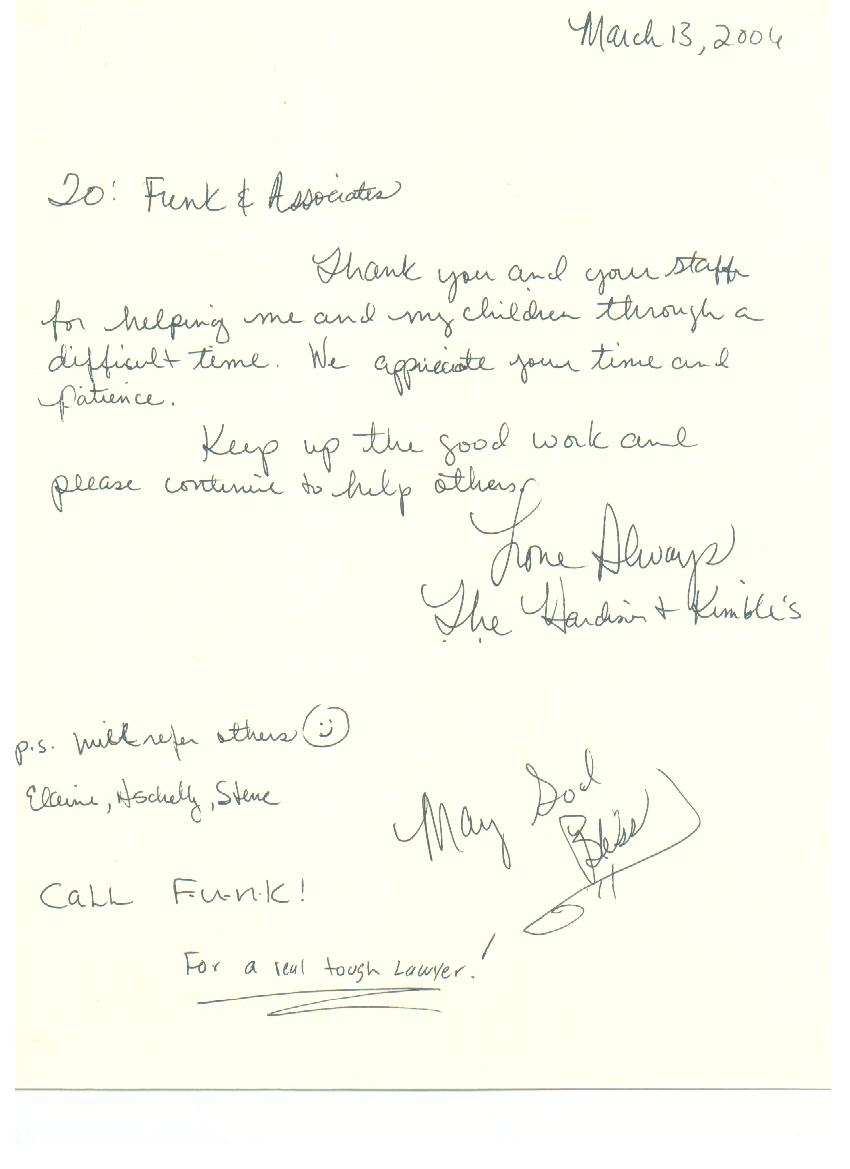 March 13, 2006
To: Funk & Associates
Thank you and your staff
for helping me and my children through a
difficult time. We appriciate your time and
patience.
Keep up the good work and
please continue to help others.
Love Always
The Hardison + Kimble's
p.s. will refer others
Elaine, Aschelly, Steve
May God
Bless
CaLL F-u-n-K!
For a real tough Lawyer!